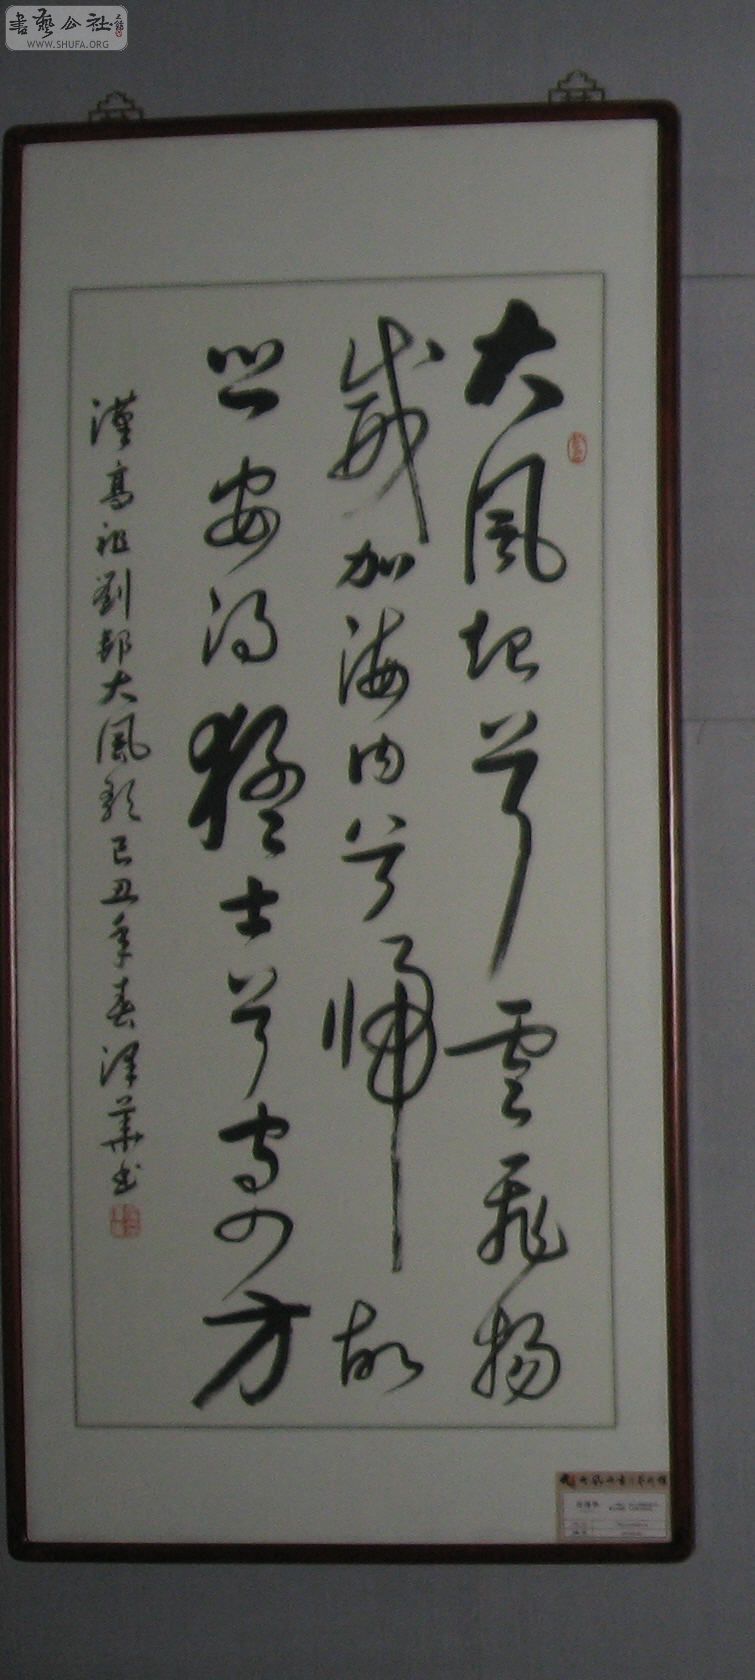 大風起兮雲飛揚
威加海內兮歸故
鄉安得猛士兮守四方
漢高祖劉邦大風歌己丑年春澤華書
書藝公社
WWW.SHUFA.ORG